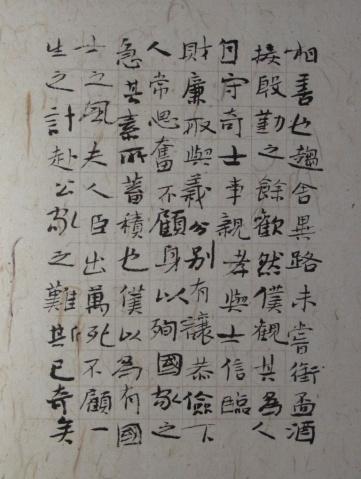 相善也趨舍異路未嘗銜盃酒
接殷勤之餘歡然僕觀其為人
自守奇士事親孝與士信臨
財廉取與義分別有讓恭儉下
人常思奮不顧身以殉國家之
急其素所蓄積也僕以為有國
士之風夫人臣出萬死不顧一
生之計赴公家之難斯已奇矣